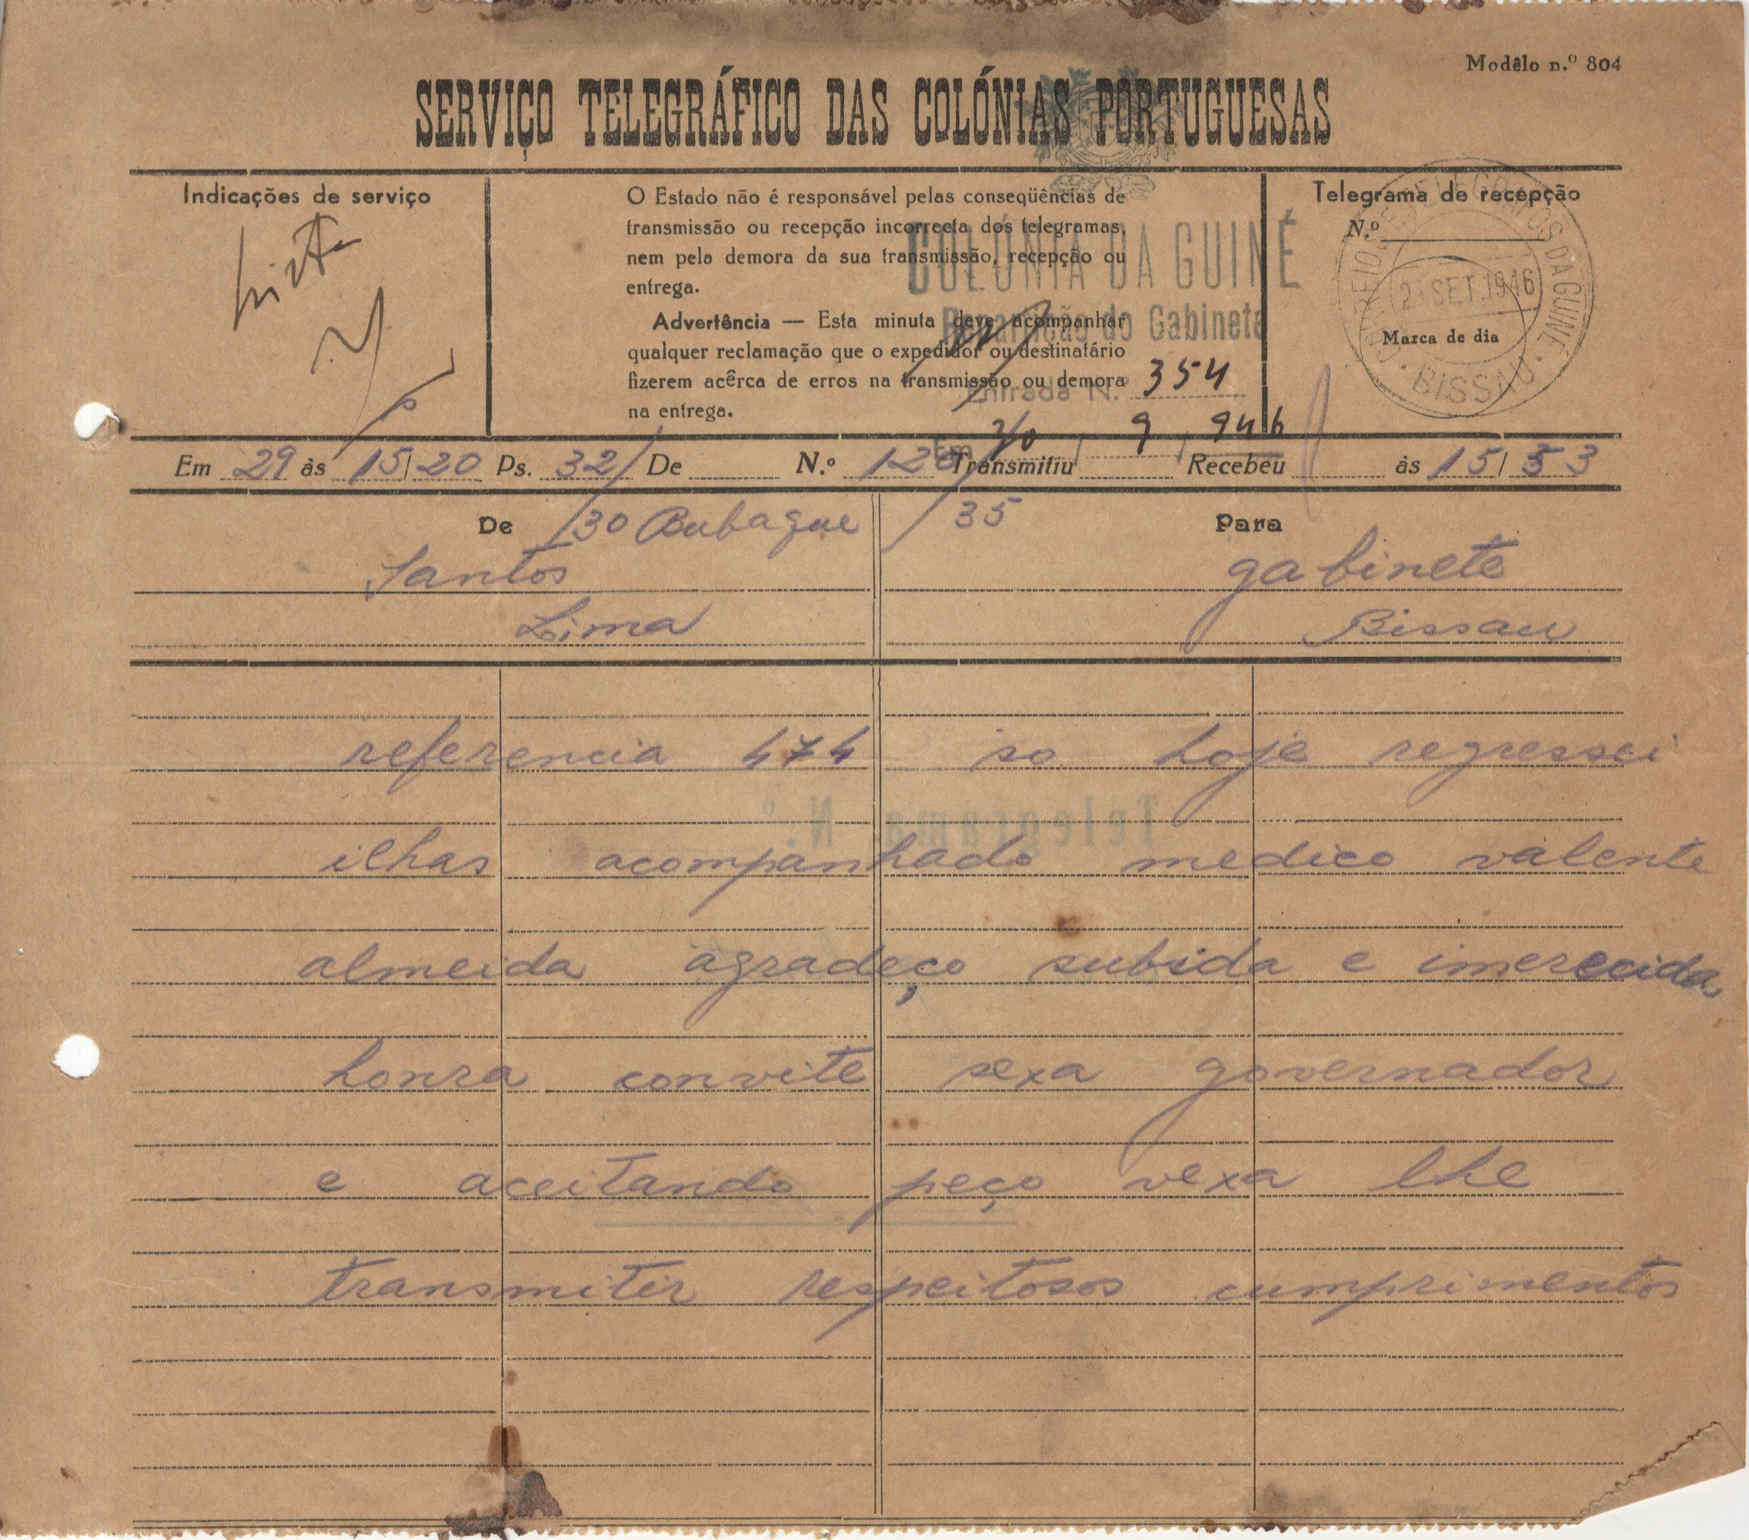 Modêlo n.º 804
SERVIÇO TELEGRÁFICO DAS COLÓNIAS PORTUGUESAS
Indicações de serviço
O Estado não é responsável pelas conseqüências de
transmissão ou recepção incorrecta dos telegramas,
nem pela demora da sua transmissão, recepção ou
entrega.
Advertência — Esta minuta deve acompanhar
qualquer reclamação que o expedidor ou destinatário
fizerem acêrca de erros na transmissão ou demora
na entrega.
COLÓNIA DA GUINÉ
Repartição do Gabinete
Entrada N.º 354
Em 30 / 9 / 946
Telegrama de recepção
N.º
SET. 1946
Marca de dia
BISSAU
Em 29 às 15/20 Ps. 32/ De N.º 120 Transmitiu Recebeu às 15/53
De /30 Bubaque /35 Para
Santos gabinete
Lima Bissau
Telegrama N.º
referencia 474 so hoje regressei
ilhas acompanhado medico valente
almeida agradeço subida e imerecida
honra convite sexa governador
e aceitando peço vexa lhe
transmitir respeitosos cumprimentos